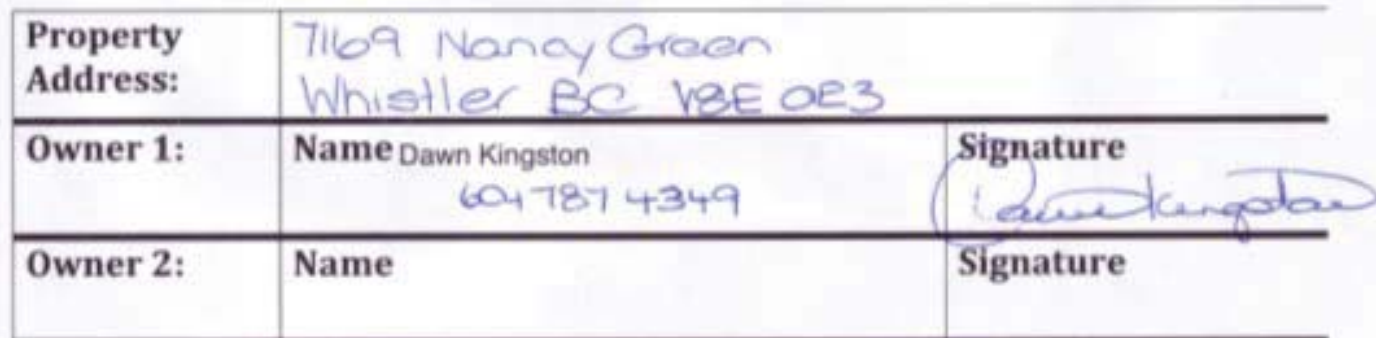 Property Address:
7169 Nancy Green
Whistler BC V8E 0E3
Owner 1:
Name Dawn Kingston
604 787 4349
Signature
Dawn Kingston
Owner 2:
Name
Signature